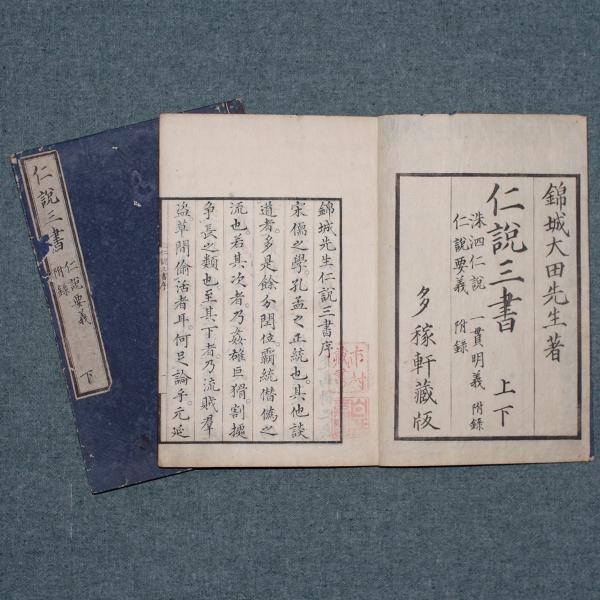 錦城大田先生著
仁說三書 上下
洙泗仁說 一貫明義 附錄
仁說要義 附錄
多稼軒藏版
錦城先生仁說三書序
宋儒之學。孔孟之正統也其他談
道者。多是餘分閏位霸統僭僞之
流也若其次者。乃姦雄巨猾。割據
爭長之類也。至其下者。乃流賊羣
盜草間偷活者耳。何足論乎。元延
仁說三書序
仁說三書 仁說要義
附錄
下